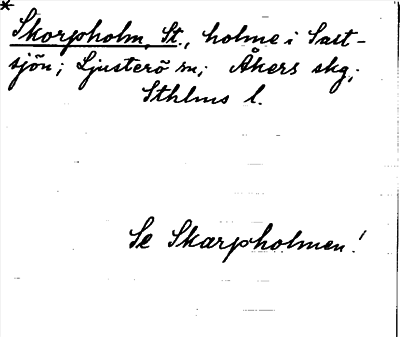 *
Skorpholm, St., holme i Saxt-
sjön; Ljusterö sn; Åkers skg;
Sthlms l.
Se Skarpholmen!